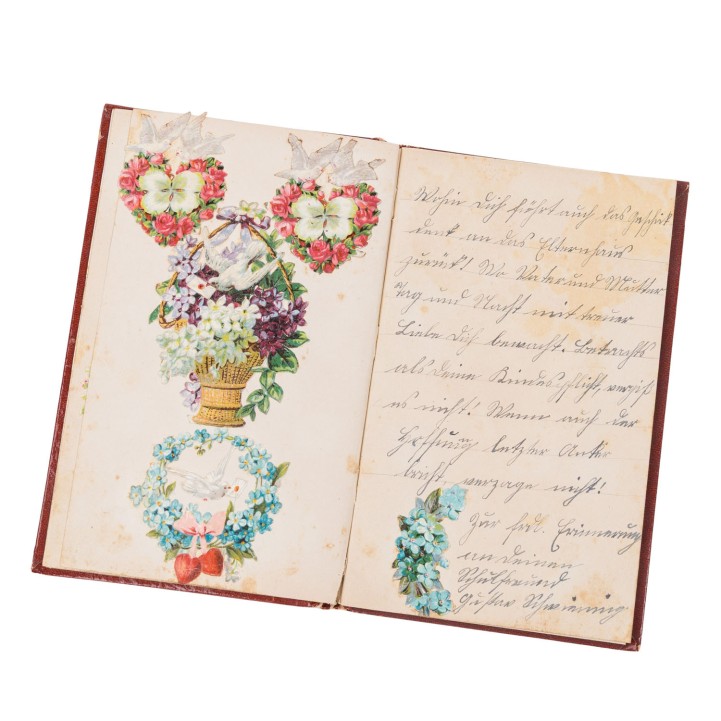 Wohin Dich führt auch das Geschick
denk an das Elternhaus
zurück! Wo Vater und Mutter
Tag und Nacht mit treuer
Liebe Dich bewacht. Betrachts
als deine Kindespflicht, vergiß
es nicht! Wenn auch der
Hoffnung letzter Anker
bricht, verzage nicht!
Zur frdl. Erinnerung
an Deinen
Schulfreund
Gustav Schwinning